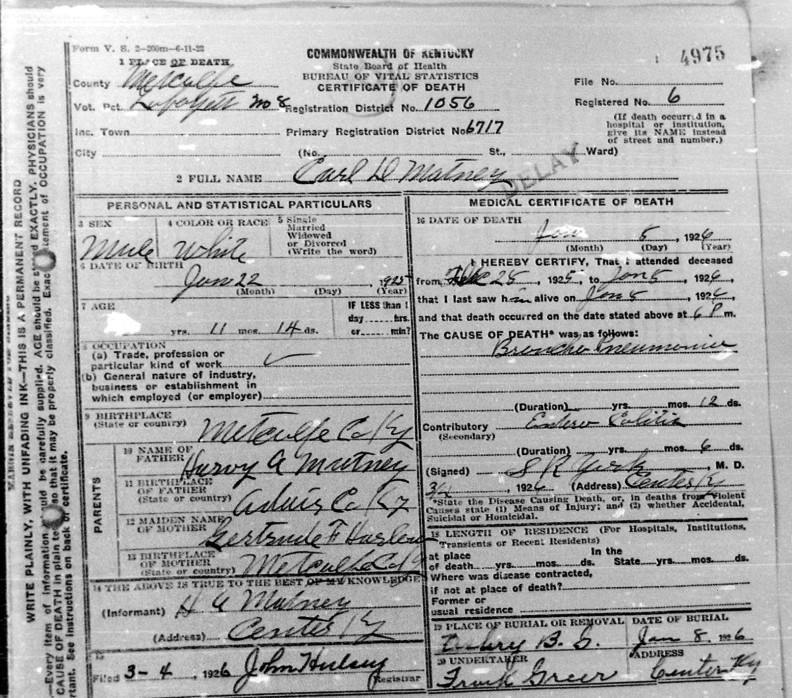 Form V. S. 2-200m-6-11-22
COMMONWEALTH OF KENTUCKY
State Board of Health
BUREAU OF VITAL STATISTICS
CERTIFICATE OF DEATH
4975
1 PLACE OF DEATH
County Metcalfe
Vot. Pct. No 8 Registration District No. 1056
File No.
Registered No. 6
Inc. Town Primary Registration District No. 6717
(If death occurred in a hospital or institution, give its NAME instead of street and number.)
City (No. St., Ward)
DELAY
2 FULL NAME Carl D Mutney
PERSONAL AND STATISTICAL PARTICULARS
3 SEX Male
4 COLOR OR RACE White
5 Single
Married
Widowed
or Divorced
(Write the word)
6 DATE OF BIRTH
Jan 22 1925
(Month) (Day) (Year)
7 AGE
IF LESS than 1
day hrs.
yrs. 11 mos. 14 ds. or min?
8 OCCUPATION
(a) Trade, profession or
particular kind of work
(b) General nature of industry,
business or establishment in
which employed (or employer)
9 BIRTHPLACE
(State or country) Metcalfe Co Ky
PARENTS
10 NAME OF
FATHER Harvy A Mutney
11 BIRTHPLACE
OF FATHER
(State or country) Adair Co Ky
12 MAIDEN NAME
OF MOTHER Gertrude F Harlow
13 BIRTHPLACE
OF MOTHER
(State or country) Metcalfe Co Ky
14 THE ABOVE IS TRUE TO THE BEST OF MY KNOWLEDGE
(Informant) H A Mutney
(Address) Center Ky
15
Filed 3-4, 1926 John Hulsey
Registrar
MEDICAL CERTIFICATE OF DEATH
16 DATE OF DEATH
Jan 5, 1926
(Month) (Day) (Year)
I HEREBY CERTIFY, That I attended deceased
from Dec 25, 1925, to Jan 5, 1926,
that I last saw him alive on Jan 5, 1926,
and that death occurred on the date stated above at 6 P m.
The CAUSE OF DEATH* was as follows:
Broncho Pneumonia
(Duration) yrs. mos. 12 ds.
Contributory Entero Colitis
(Secondary)
(Duration) yrs. mos. 6 ds.
(Signed) S R York, M. D.
, 1926 (Address) Center Ky
*State the Disease Causing Death, or, in deaths from Violent
Causes state (1) Means of Injury; and (2) whether Accidental,
Suicidal or Homicidal.
18 LENGTH OF RESIDENCE (For Hospitals, Institutions,
Transients or Recent Residents)
at place In the
of death yrs. mos. ds. State yrs. mos. ds.
Where was disease contracted,
if not at place of death?
Former or
usual residence
19 PLACE OF BURIAL OR REMOVAL DATE OF BURIAL
B. G. Jan 8, 1926
20 UNDERTAKER ADDRESS
Frank Greer Center Ky
WRITE PLAINLY, WITH UNFADING INK—THIS IS A PERMANENT RECORD